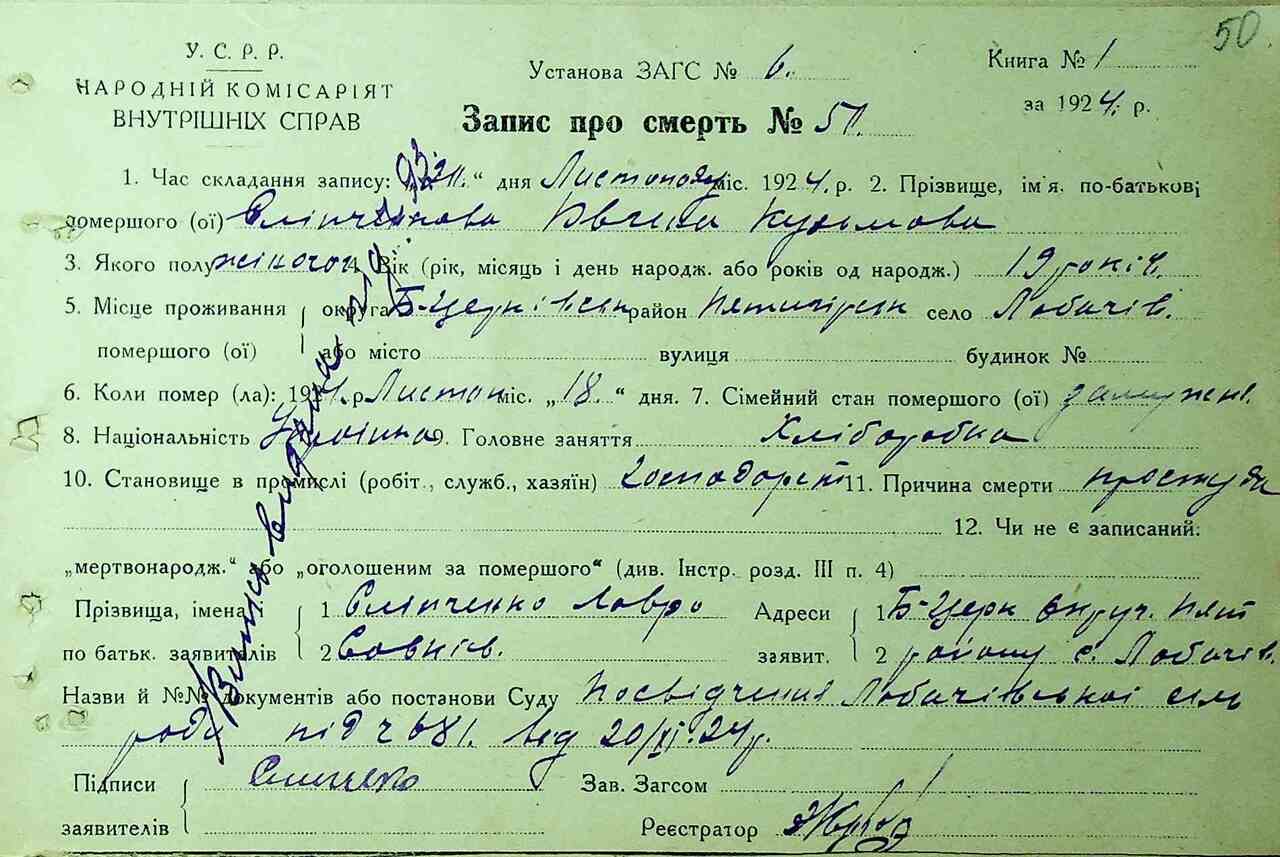 50
У. С. Р. Р.
НАРОДНІЙ КОМІСАРІЯТ
ВНУТРІШНІХ СПРАВ
Установа ЗАГС № 6.
Книга № 1
за 1924. р.
Запис про смерть № 50.
1. Час складання запису: „ “ дня Листопаду міс. 1924. р. 2. Прізвище, ім'я. по-батькові
помершого (ої) Сліпченкова Кузьмова
3. Якого полу жіночого 4. Вік (рік, місяць і день народж. або років од народж.) 19 років.
5. Місце проживання округа Б-Церківськ район Пятигірськ село Лобачів.
помершого (ої) або місто вулиця будинок №
6. Коли помер (ла): 1924. р. Листоп міс. „18.“ дня. 7. Сімейний стан помершого (ої) замужня.
8. Національність Українка 9. Головне заняття Хліборобка
10. Становище в промислі (робіт., служб., хазяїн) 11. Причина смерти простуда
12. Чи не є записаний:
„мертвонародж.“ або „оголошеним за помершого“ (див. Інстр. розд. III п. 4)
Прізвища, імена і 1 Сліпченко Лавро Адреси 1 Б-Церк округ. Пят
по батьк. заявителів 2 заявит. 2 району с. Лобачів.
Назви й №№ документів або постанови Суду Посвідчення Лобачівської сіль
ради під ч 681. від 20/XI-24 р.
Підписи Зав. Загсом
заявителів Реєстратор
Випись видана